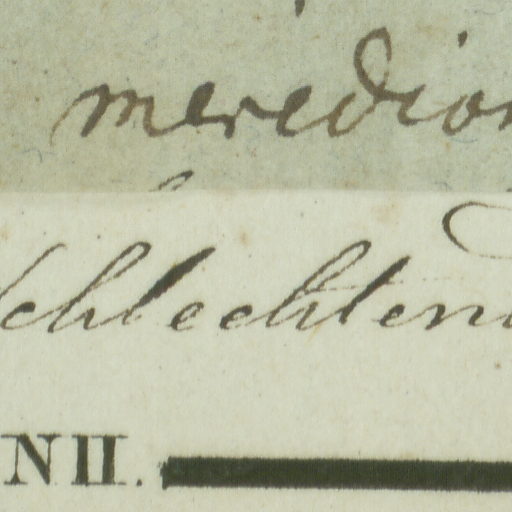 meridion
Schlechtend
NII.